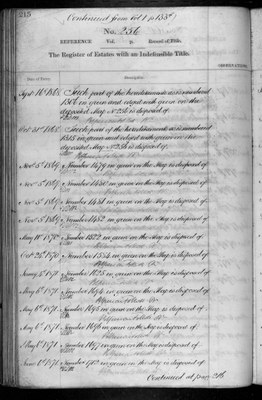 215
(Continued from Vol 1 p 135)
No. 256
REFERENCE Vol. p. Record of Title.
The Register of Estates with an Indefeasible Title.
Date of Entry. Description. OBSERVATIONS
Sept 16th 1865 Such part of the hereditaments as is numbered
1506 in green and edged with green on the
deposited Map No 256 is disposed of
Octr 31st 1865 Such part of the hereditaments as is numbered
1515 in green and edged with green on the
deposited Map No 256 is disposed of
Novr 5th 1869 Number 1479 in green on the Map is disposed of
Novr 5th 1869 Number 1480 in green on the Map is disposed of
Novr 5th 1869 Number 1481 in green on the Map is disposed of
Novr 5th 1869 Number 1482 in green on the Map is disposed of
May 10th 1870 Number 1522 in green on the Map is disposed of
Octr 24th 1870 Number 1554 in green on the Map is disposed of
Jany 5th 1871 Number 1625 in green on the Map is disposed of
May 6th 1871 Number 1694 in green on the Map is disposed of
May 6th 1871 Number 1695 in green on the Map is disposed of
May 6th 1871 Number 1696 in green on the Map is disposed of
May 6th 1871 Number 1697 in green on the Map is disposed of
June 1st 1871 Number 1712 in green on the Map is disposed of
Continued at page 216